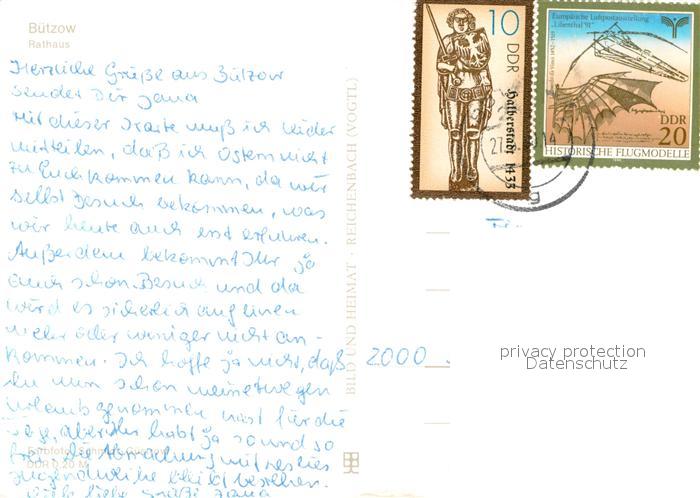 Bützow
Rathaus
Herzliche Grüße aus Bützow
sendet Dir Jana
Mit dieser Karte muß ich leider
mitteilen, daß ich Ostern nicht
zu Euch kommen kann, da wir
selbst Besuch bekommen, was
wir heute auch erst erfuhren.
Außerdem bekommt Ihr ja
auch schon Besuch und da
wird es sicherlich auf einen
mehr oder weniger nicht an-
kommen. Ich hoffe ja nicht, daß
Du nun schon meinetwegen
Urlaub genommen hast für die
Tage, aber Ihr habt ja so und so
frei. Die Abmachung mit
Jugendweihe bleibt bestehen.
Viele liebe Grüße Jana
DDR 0,20 M
BILD UND HEIMAT · REICHENBACH (VOGTL)
10
DDR
Halberstadt 1433
Europäische Luftpostausstellung
"Lilienthal '91"
DDR
20
HISTORISCHE FLUGMODELLE
2000
privacy protection
Datenschutz